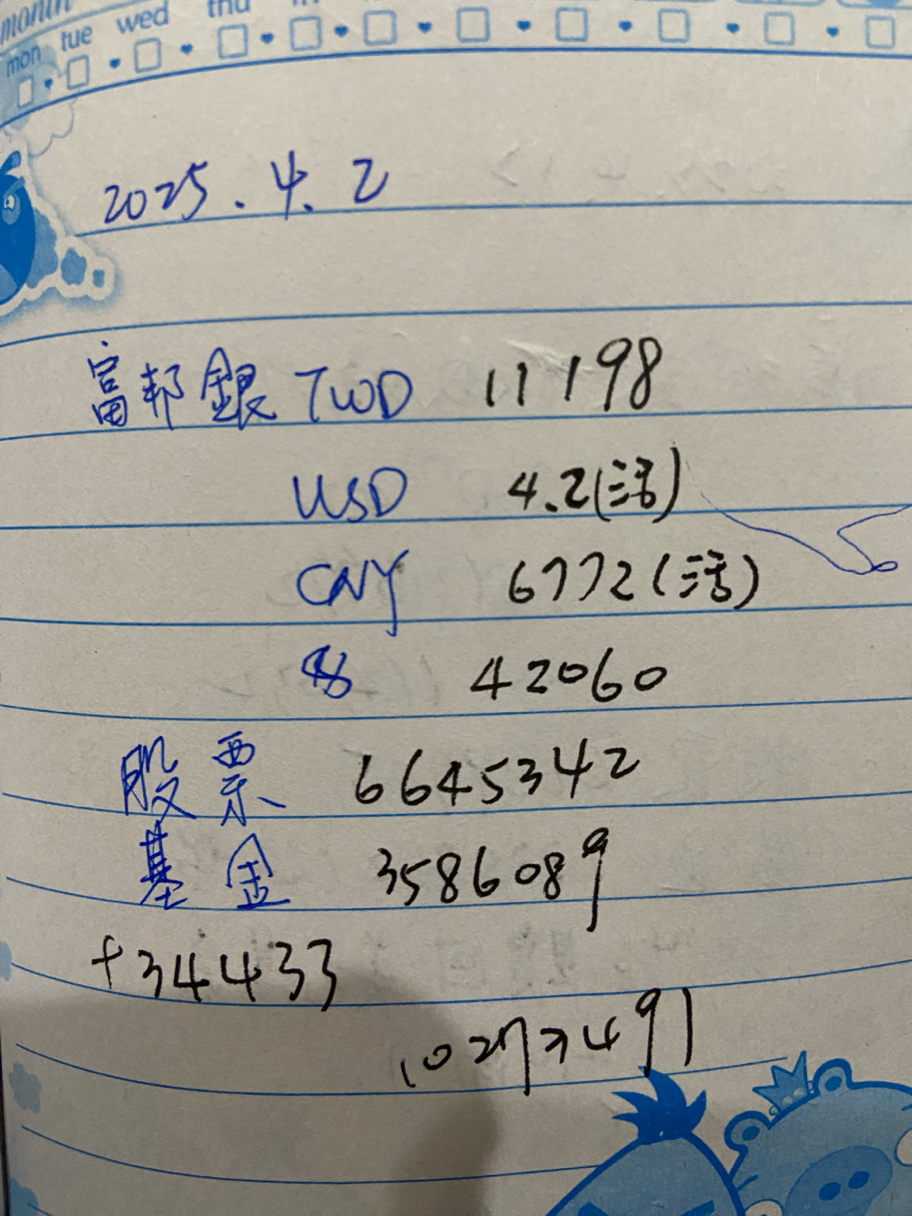 month
mon tue wed thu
2025.4.2
富邦銀 TWD 11198
USD 4.2(活)
CNY 6772(活)
$ 42060
股票 6645342
基金 3586089
+34433
10273491